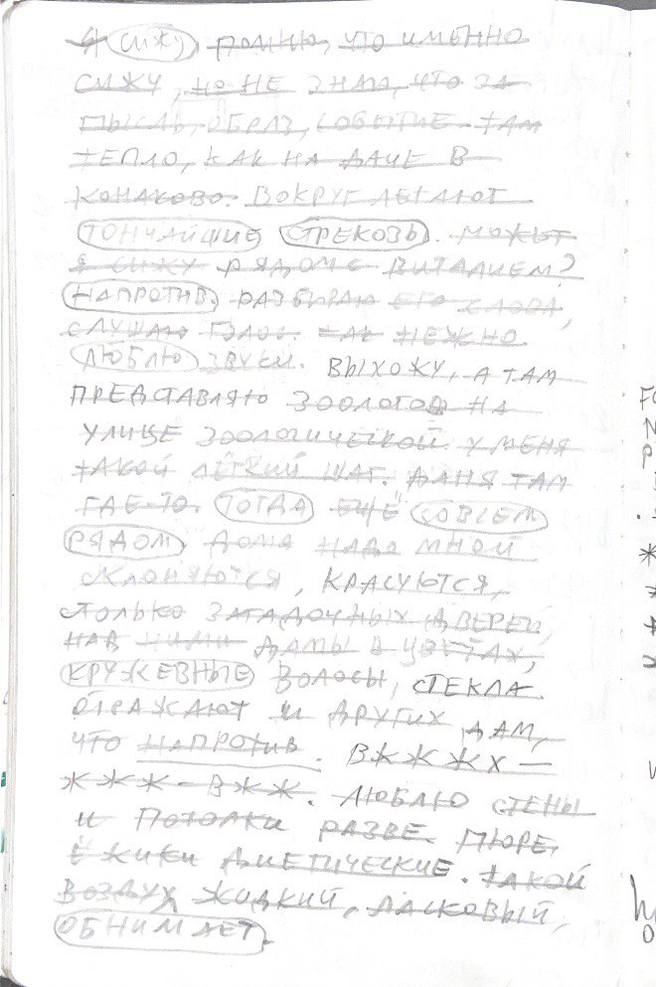 Я сижу помню, что именно
сижу, но не знаю, что за
мысль, образ, событие. там
тепло, как на даче в
Конаково. Вокруг летают
тончайшие стрекозы. может
я сижу рядом с Виталием?
напротив. разбираю его слова,
слушаю голос. так нежно
люблю звуки. выхожу, а там
представляю зоологов на
улице зоологической. у меня
такой лёгкий шаг. Даня там
где-то. тогда ещё совсем
рядом. дома надо мной
склоняются, красуются,
столько загадочных дверей,
над ними дамы в цветах,
кружевные волосы, стекла
отражают и других дам,
что напротив. вжжжх —
жжж — вжж. люблю стены
и потолки разве. пюре,
ёжики диетические. такой
воздух жидкий, ласковый,
обнимает.